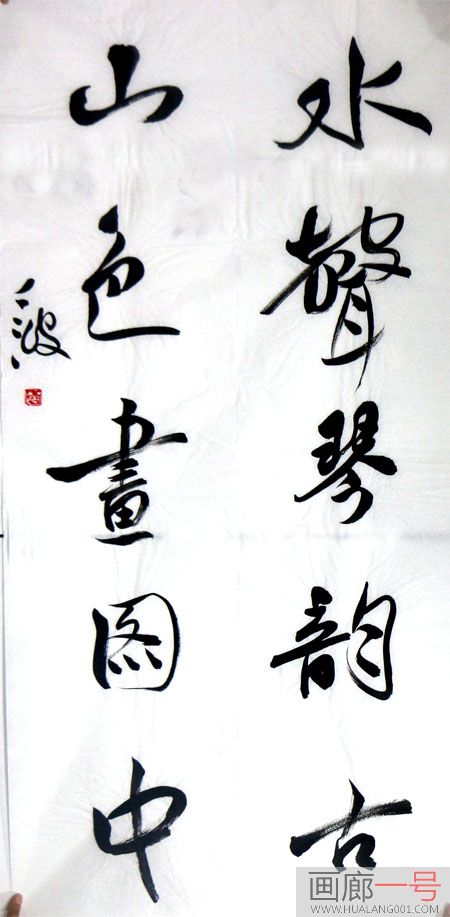 水聲琴韵古
山色畫图中
画廊一号
WWW.HUALANG001.COM